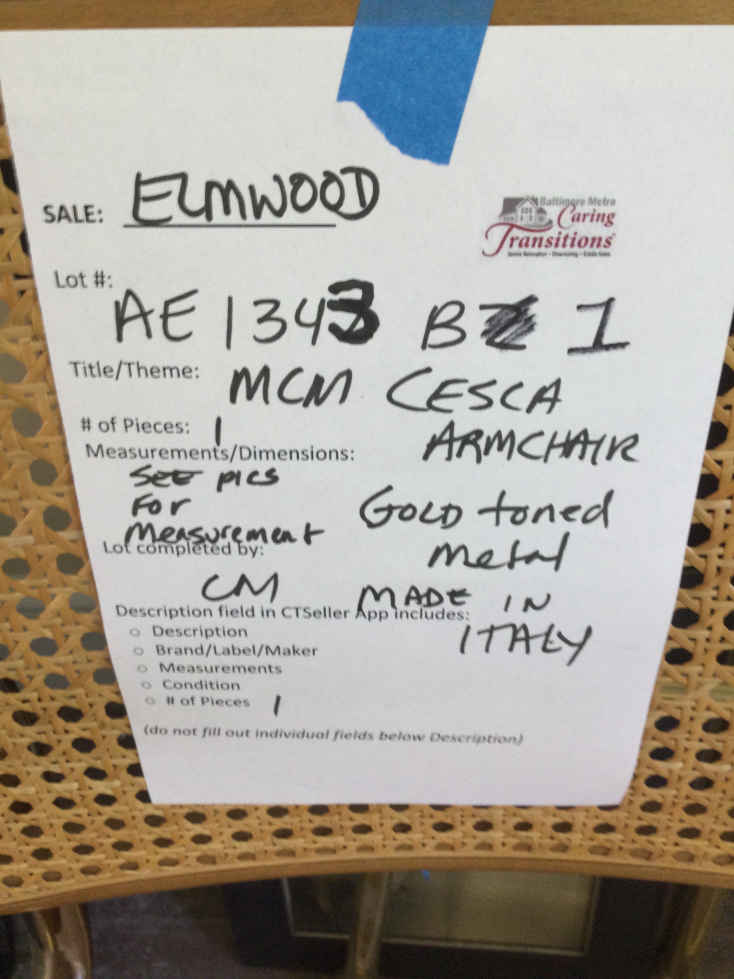 SALE: ELMWOOD
Baltimore Metro
Caring
Transitions
Lot #:
AE 1343 B 1
Title/Theme: MCM CESCA
ARMCHAIR
# of Pieces: 1
Measurements/Dimensions:
SEE pics
For
Measurement
Gold toned
metal
Lot completed by:
CM
MADE IN
ITALY
Description field in CTSeller App includes:
○ Description
○ Brand/Label/Maker
○ Measurements
○ Condition
○ # of Pieces 1
(do not fill out individual fields below Description)